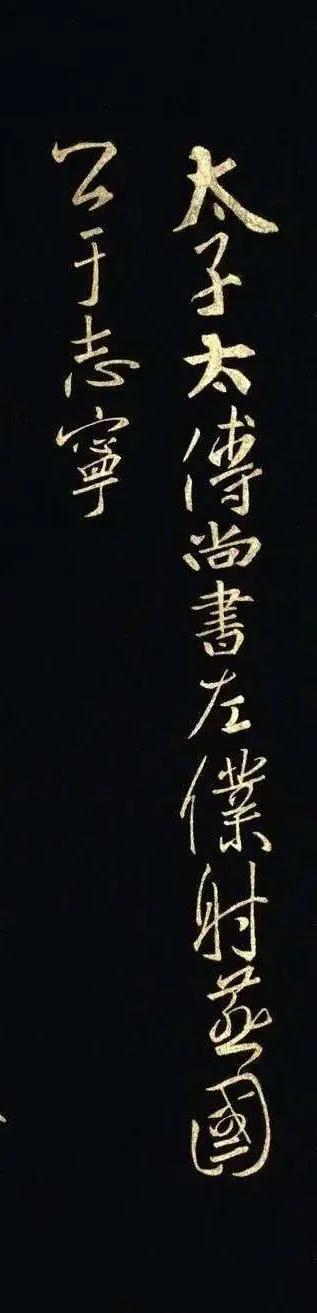 太子太傅尚書左僕射燕國
公于志寧